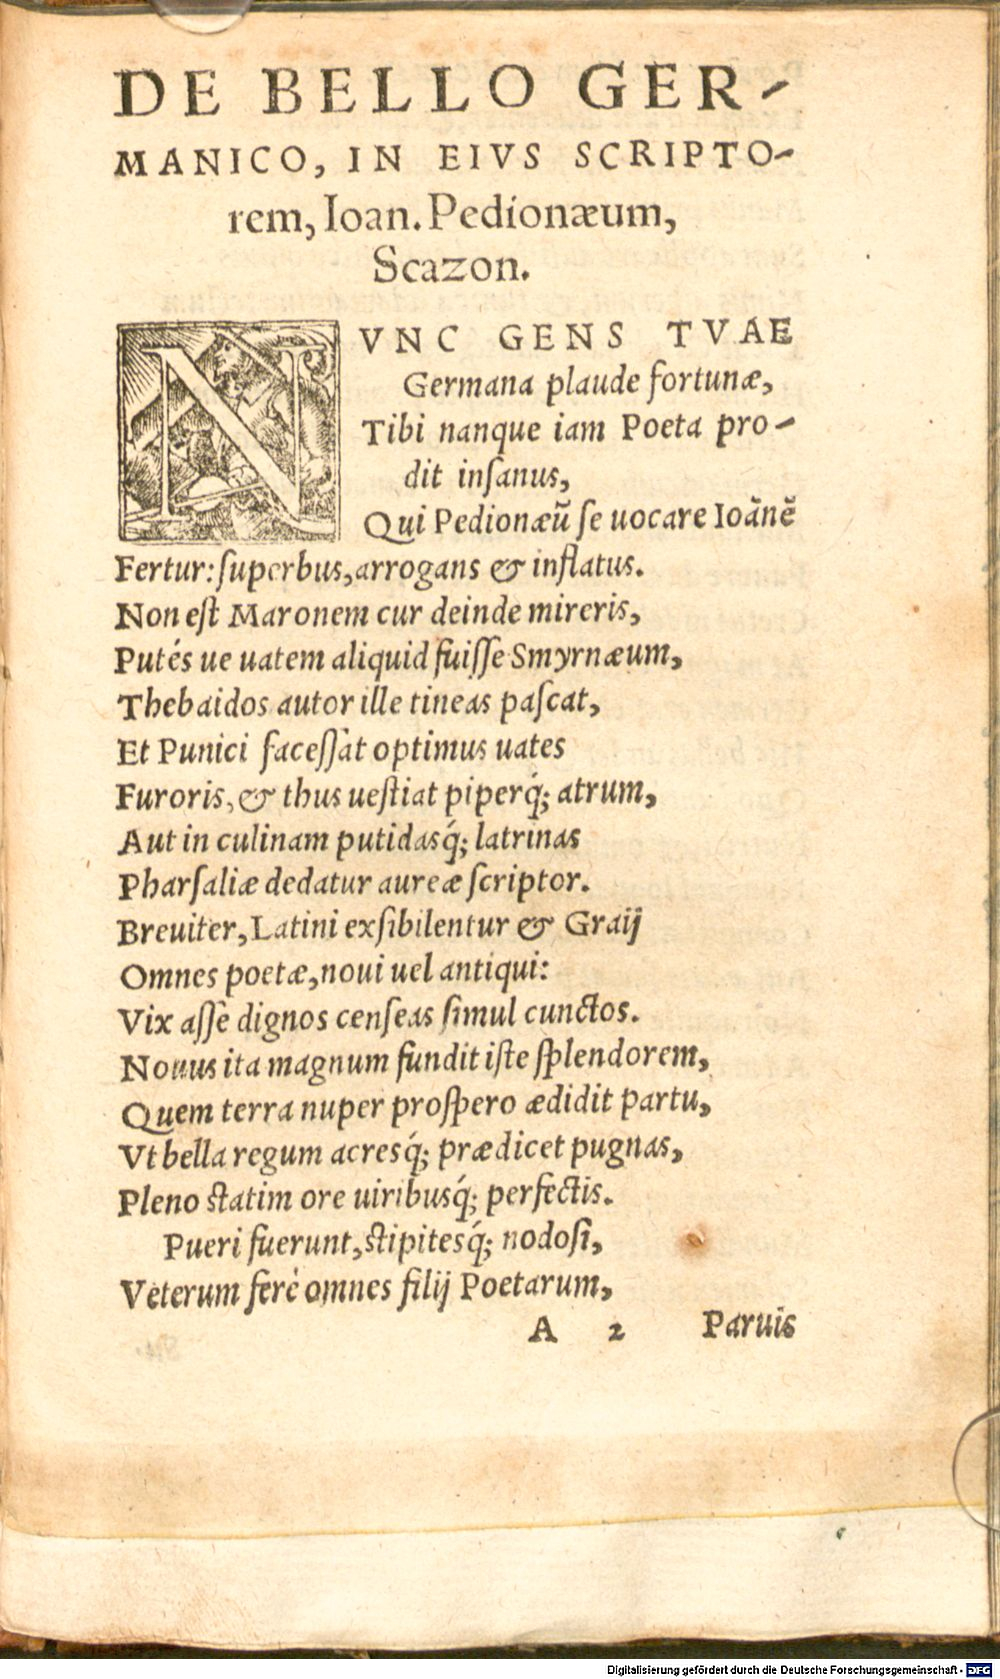 DE BELLO GER-
MANICO, IN EIVS SCRIPTO-
rem, Ioan. Pedionæum,
Scazon.
NVNC GENS TVAE
Germana plaude fortunæ,
Tibi nanque iam Poeta pro-
dit inſanus,
Qui Pedionæũ ſe uocare Ioãnẽ
Fertur: ſuperbus, arrogans & inflatus.
Non eſt Maronem cur deinde mireris,
Putés ue uatem aliquid fuiſſe Smyrnæum,
Thebaidos autor ille tineas paſcat,
Et Punici faceſſat optimus uates
Furoris, & thus ueſtiat piperq́; atrum,
Aut in culinam putidasq́; latrinas
Pharſaliæ dedatur aureæ ſcriptor.
Breuiter, Latini exſibilentur & Graij
Omnes poetæ, noui uel antiqui:
Vix aſſe dignos cenſeas ſimul cunctos.
Nouus ita magnum fundit iſte ſplendorem,
Quem terra nuper proſpero ædidit partu,
Vt bella regum acresq́; prædicet pugnas,
Pleno ſtatim ore uiribusq́; perfectis.
Pueri fuerunt, ſtipitesq́; nodoſi,
Veterum ferè omnes filij Poetarum,
A 2 Paruis
Digitalisierung gefördert durch die Deutsche Forschungsgemeinschaft - DFG